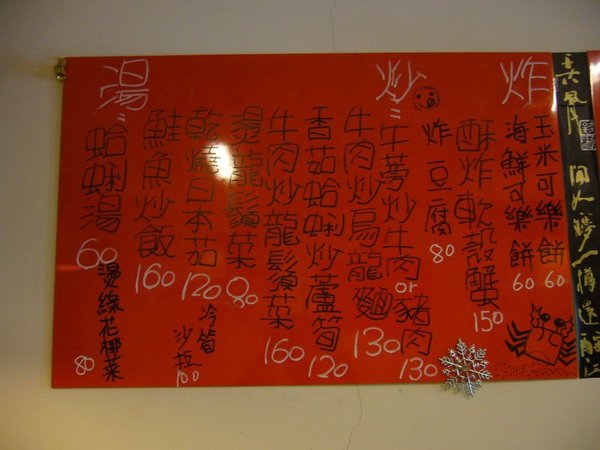 炸
玉米可樂餅 60
海鮮可樂餅 60
酥炸軟殼蟹 150
炸豆腐 80
炒
牛蒡炒牛肉or豬肉 130
牛肉炒烏龍麵 130
香菇蛤蜊炒蘆筍 120
牛肉炒龍鬚菜 160
燙龍鬚菜
冷筍沙拉 100
乾燒日本茄 120
鮭魚炒飯 160
湯
蛤蜊湯 60
燙綠花椰菜 80